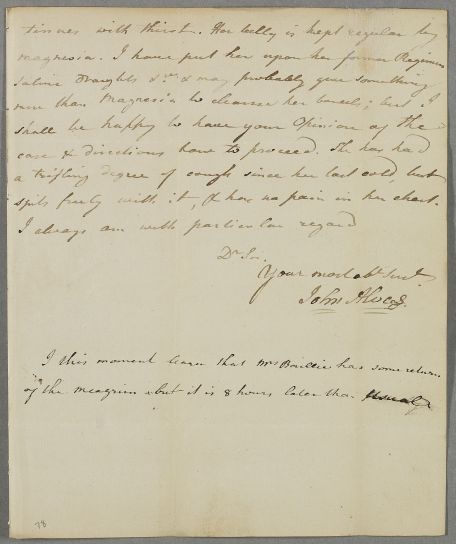 tinues with thirst. Her belly is kept regular by
magnesia. I have put her upon her former Regimen
saline Draughts &c & may probably give something
more than Magnesia to cleanse her bowels; but I
shall be happy to have your Opinion of the
case & directions how to proceed. She has had
a trifling degree of cough since her last cold, but
spits freely with it, & has no pain in her chest.
I always am with particular regard
Dr Sir.
Your most obt Servt
John
I this moment learn that Mrs Baillie has some return
of the meagrim but it is 8 hours later than usual
78